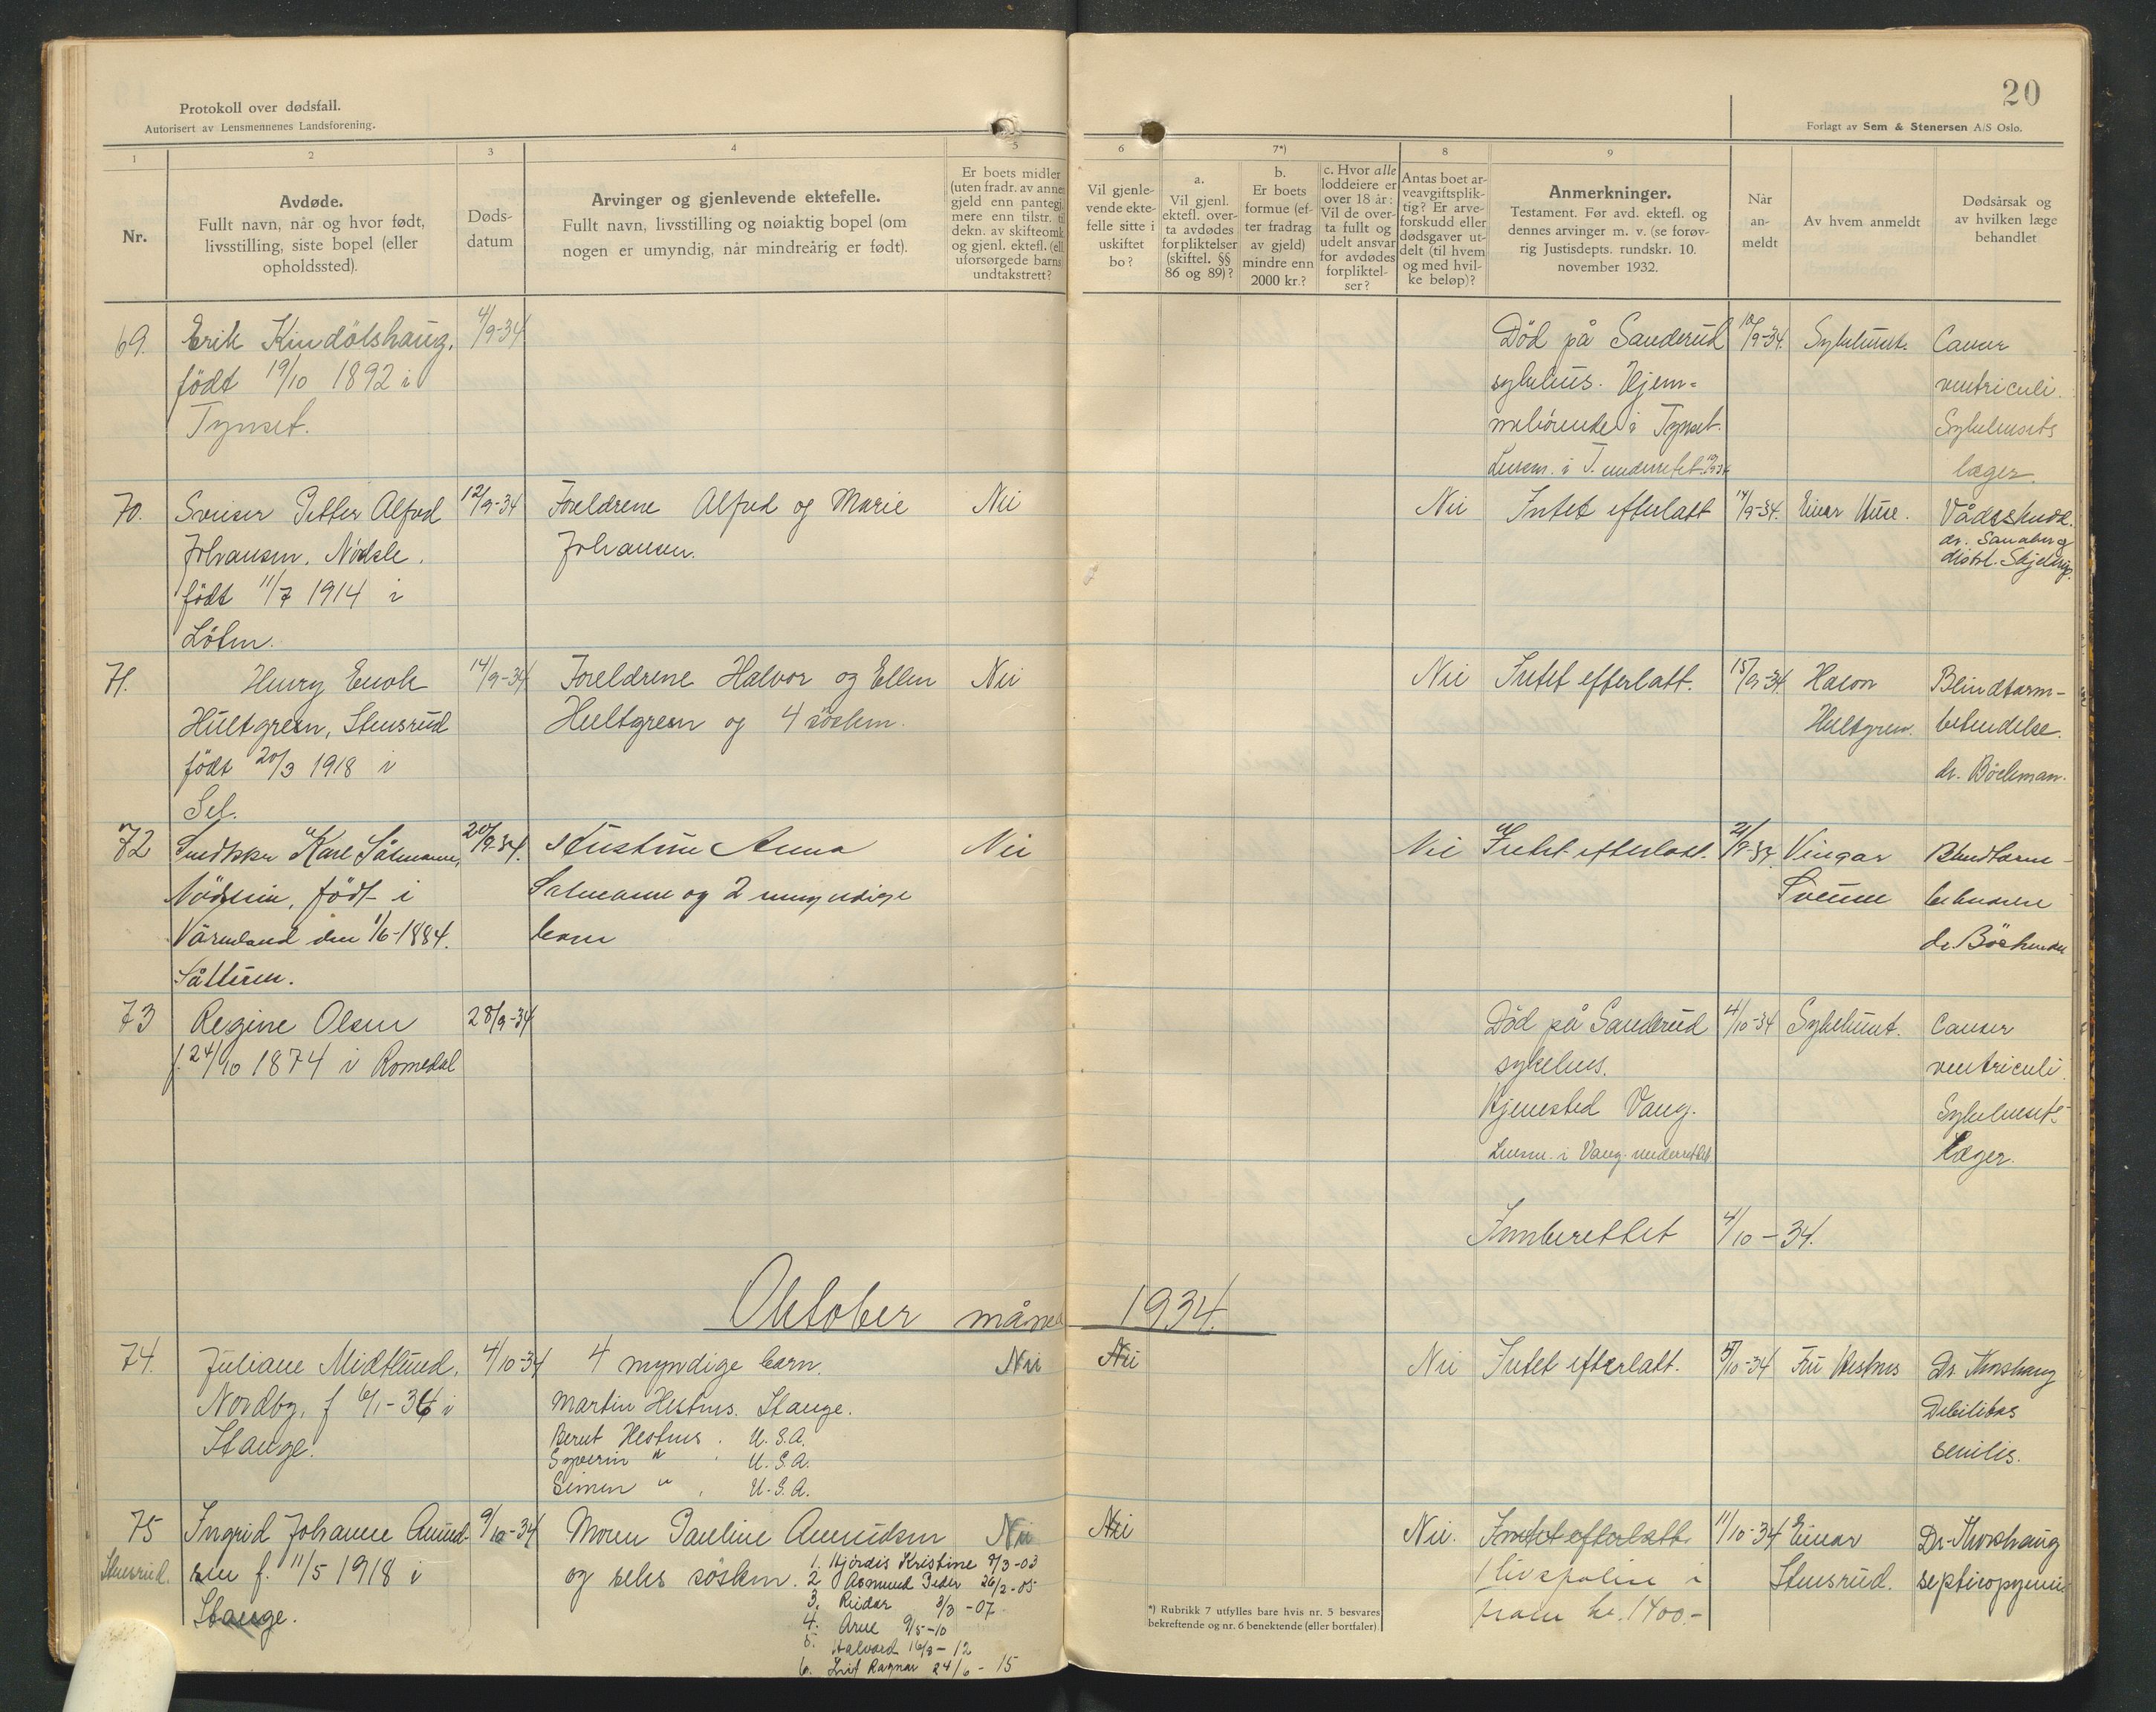 Protokoll over dødsfall.
Autorisert av Lensmennenes Landsforening.
20
Forlagt av Sem & Stenersen A/S Oslo.
1
2
3
4
5
6
7*)
8
9
Nr.
Avdøde.
Fullt navn, når og hvor født,
livsstilling, siste bopel (eller
opholdssted).
Døds-
datum
Arvinger og gjenlevende ektefelle.
Fullt navn, livsstilling og nøiaktig bopel (om
nogen er umyndig, når mindreårig er født).
Er boets midler
(uten fradr. av annen
gjeld enn pantegj.
mere enn tilstr. til
dekn. av skifteomk.
og gjenl. ektefl. (ell.
uforsørgede barns
undtakstrett?
Vil gjenle-
vende ekte-
felle sitte i
uskiftet
bo?
a.
Vil gjenl.
ektefl. over-
ta avdødes
forpliktelser
(skiftel. §§
86 og 89)?
b.
Er boets
formue (ef-
ter fradrag
av gjeld)
mindre enn
2000 kr.?
c. Hvor alle
loddeiere er
over 18 år:
Vil de over-
ta fullt og
udelt ansvar
for avdødes
forpliktel-
ser?
Antas boet ar-
veavgiftsplik-
tig? Er arve-
forskudd eller
dødsgaver ut-
delt (til hvem
og med hvil-
ke beløp)?
Anmerkninger.
Testament. Før avd. ektefl. og
dennes arvinger m. v. (se forøv-
rig Justisdepts. rundskr. 10.
november 1932.
Når
an-
meldt
Av hvem anmeldt
Dødsårsak og
av hvilken læge
behandlet
69. Erik Kindølshaug, 4/9-34
født 19/10 1892 i
Tynset.
Død på Sanderud
sykehus. Hjem-
mehörende i Tynset.
Lensm. i T. underrettet
10/9-34. Sykehuset.
Cancer
ventriculi.
Sykehusets
læger.
70. Sveiser Petter Alfred 12/9-34 Foreldrene Alfred og Marie Nei
Johansen. Nordsle.
Johansen.
født 11/7 1914 i
Löten.
Nei Intet efterlatt 14/9-34. Einar Huse. Vådeskudd.
dr. Sandberg
distrl. Skjelderup.
71. Henry Enok 14/9-34 Foreldrene Halvor og Ellen Nei
Hultgreen, Stensrud
Hultgreen og 4 söskn.
født 20/3 1918 i
Sel.
Nei Intet efterlatt. 15/9-34 Hacon
Hultgreen.
Blindtarm-
betendelse.
dr. Böckman.
72 Snekker Karl Salmann, 20/9-34. Hustru Anna Nei
født i
Salmann og 2 umyndige
Värmland den 1/6-1884.
barn
Såtteren.
Nei Intet efterlatt. 21/9-34. Vingar
Sveum
Blindtarm-
betendelse
dr. Böckman
73 Regine Olsen 28/9-34
f. 24/10 1874 i Romedal
Død på Sanderud
sykehus.
Hjemsted Vang.
Lensm. i Vang. underrettet.
4/10-34 Sykehuset.
Cancer
ventriculi.
Sykehusets
Læger.
Innberettet 4/10-34.
Oktober måned 1934.
74. Juliane Midtlund, 4/10-34 4 myndige barn. Nei Nei
Nordby, f 6/1-36 i
Stange.
Martin Hestnes. Stange.
Bernt Hestnes. U.S.A.
Syverin " . U.S.A.
Simen " . U.S.A.
Nei Intet efterlatt. 5/10-34 Fru Hestnes Dr. Thorshaug
Debilitas
senilis.
75 Ingrid Johanne Amund- 9/10-34 Moren Pauline Amundsen Nei Nei
Stensrud. sen f. 11/5 1918 i
Stange.
og seks söskn.
1. Hjördis Kristine 8/3-03
2 Asmund Peder 26/2-05
3. Reidar 3/3-07
4. Arne 9/5-10
5. Halvard 16/3-12
6. Leif Ragnar 24/6-15
Nei. Intet efterlatt.
1 livspolise i
fram kr. 1400.-
11/10-34 Einar
Stensrud.
Dr. Thorshaug
septicopyemi
*) Rubrikk 7 utfylles bare hvis nr. 5 besvares
bekreftende og nr. 6 benektende (eller bortfaller).